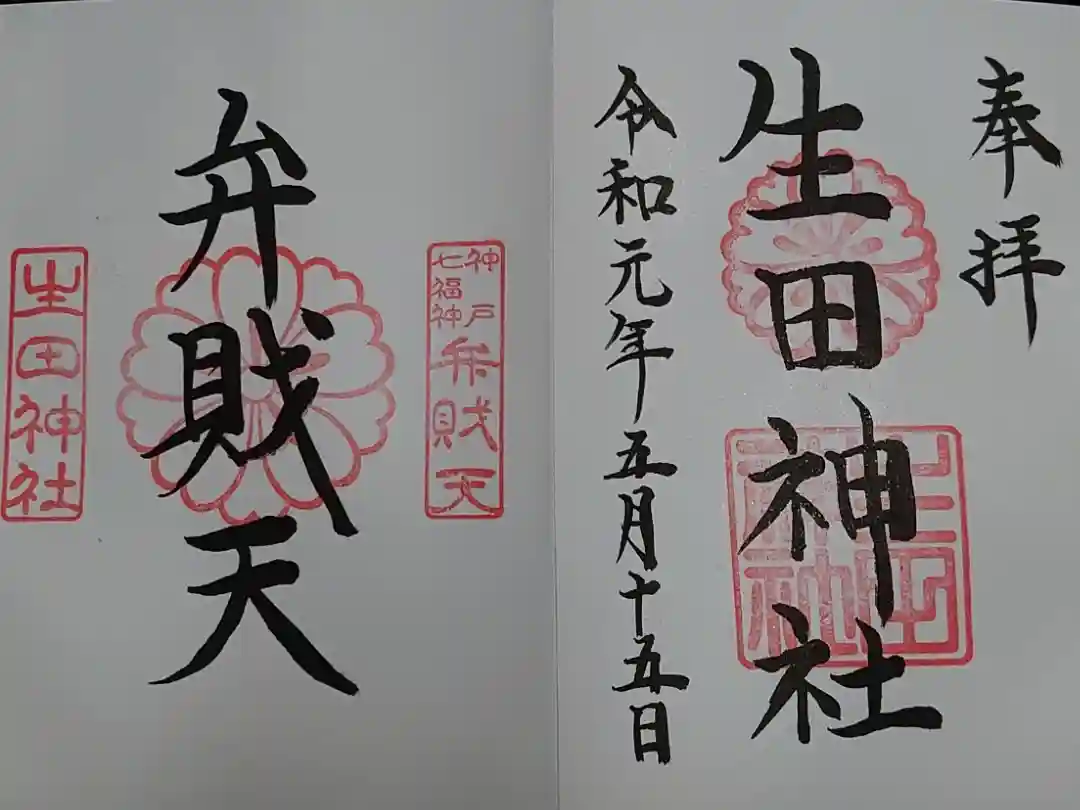 奉拝
生田神社
生田神社
令和元年五月十五日
神戸七福神
弁財天
弁財天
生田神社